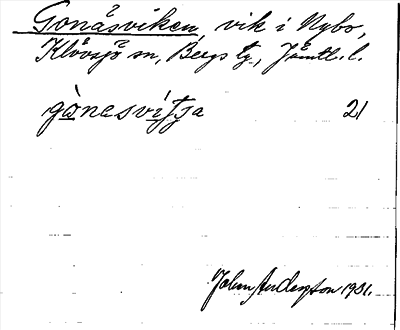 Gonåsviken, vik i Nybo,
Klövsjö sn, Bergs tg., Jämtl. l.
gònasvitja 21
John Anderson 1931.